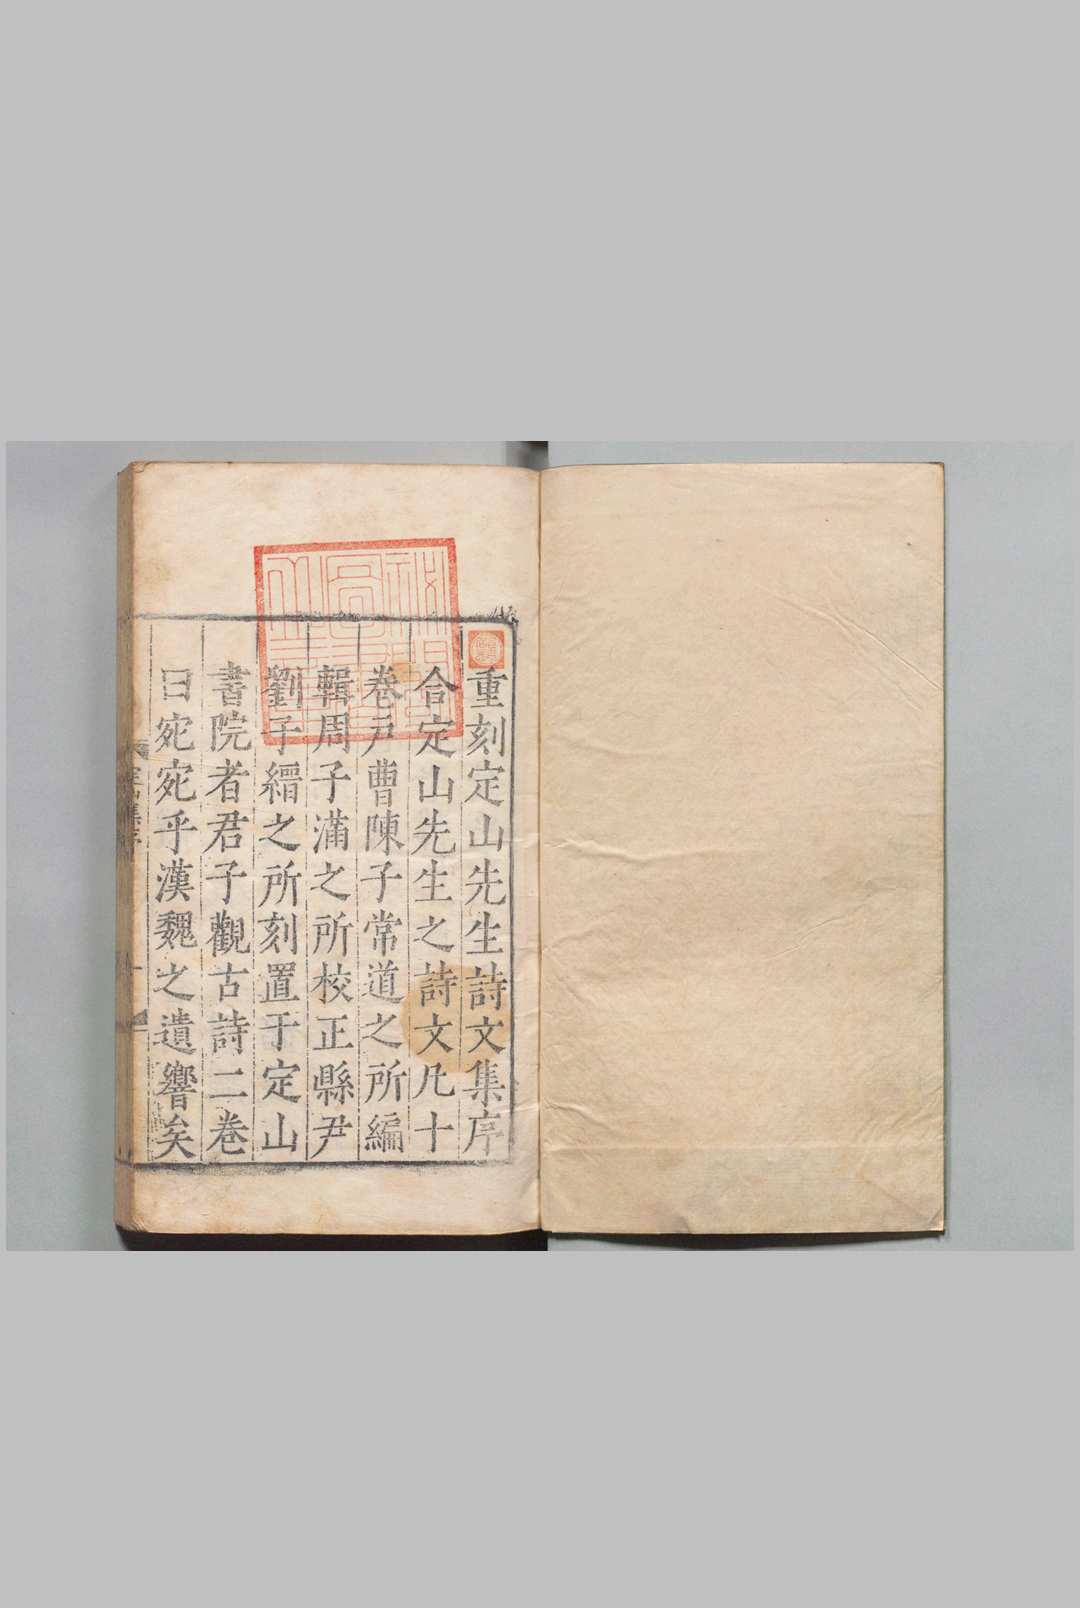 重刻定山先生詩文集序
合定山先生之詩文凡十
卷戶曹陳子常道之所編
輯周子滿之所校正縣尹
劉子縉之所刻置于定山
書院者君子觀古詩二卷
曰宛宛乎漢魏之遺響矣